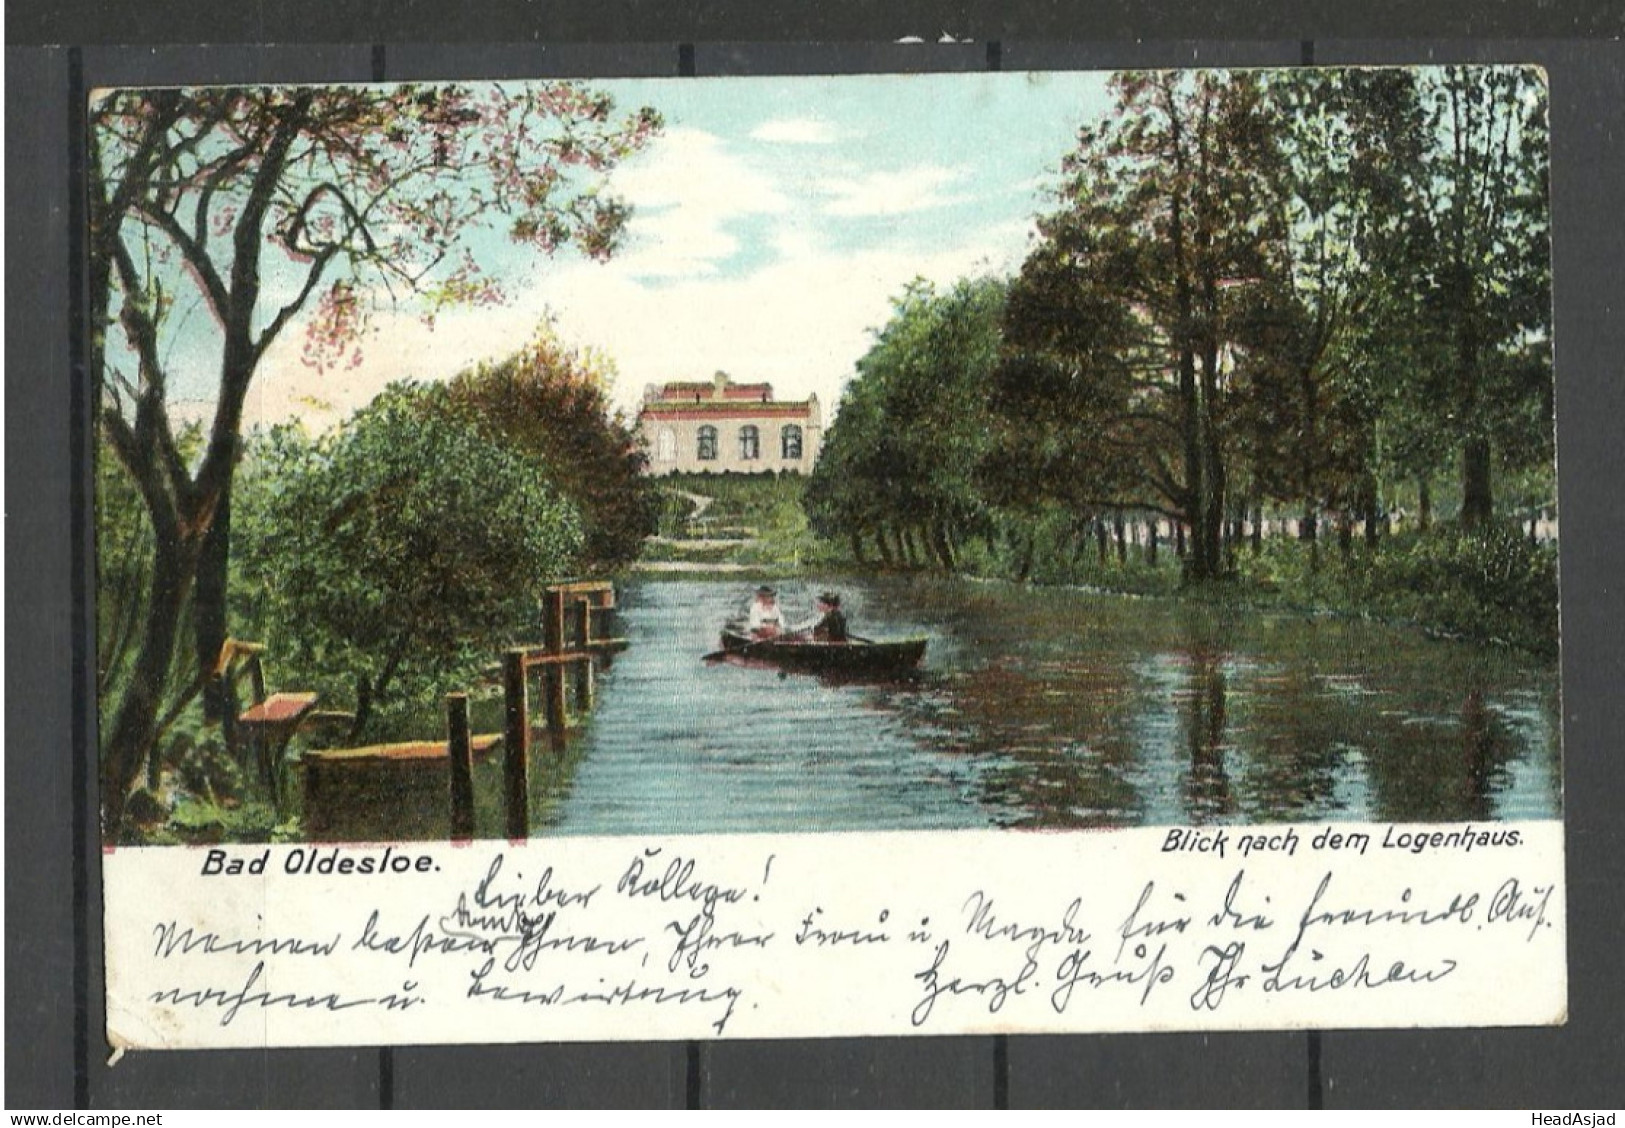 Bad Oldesloe.
Blick nach dem Logenhaus.
Lieber Kollege!
Dank
Meinen besten Ihnen, Ihrer Frau u. Magda für die freundl. Auf-
nahme u. Bewirtung.
Herzl. Gruß Ihr
HeadAsjad